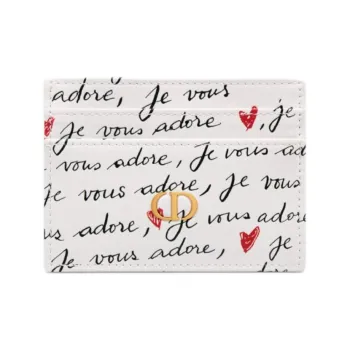 adore, je vous
, je
je vous adore,
vous adore, je vous
je vous adore, je vous
CD
adore, je vous adore,
vous adore, je